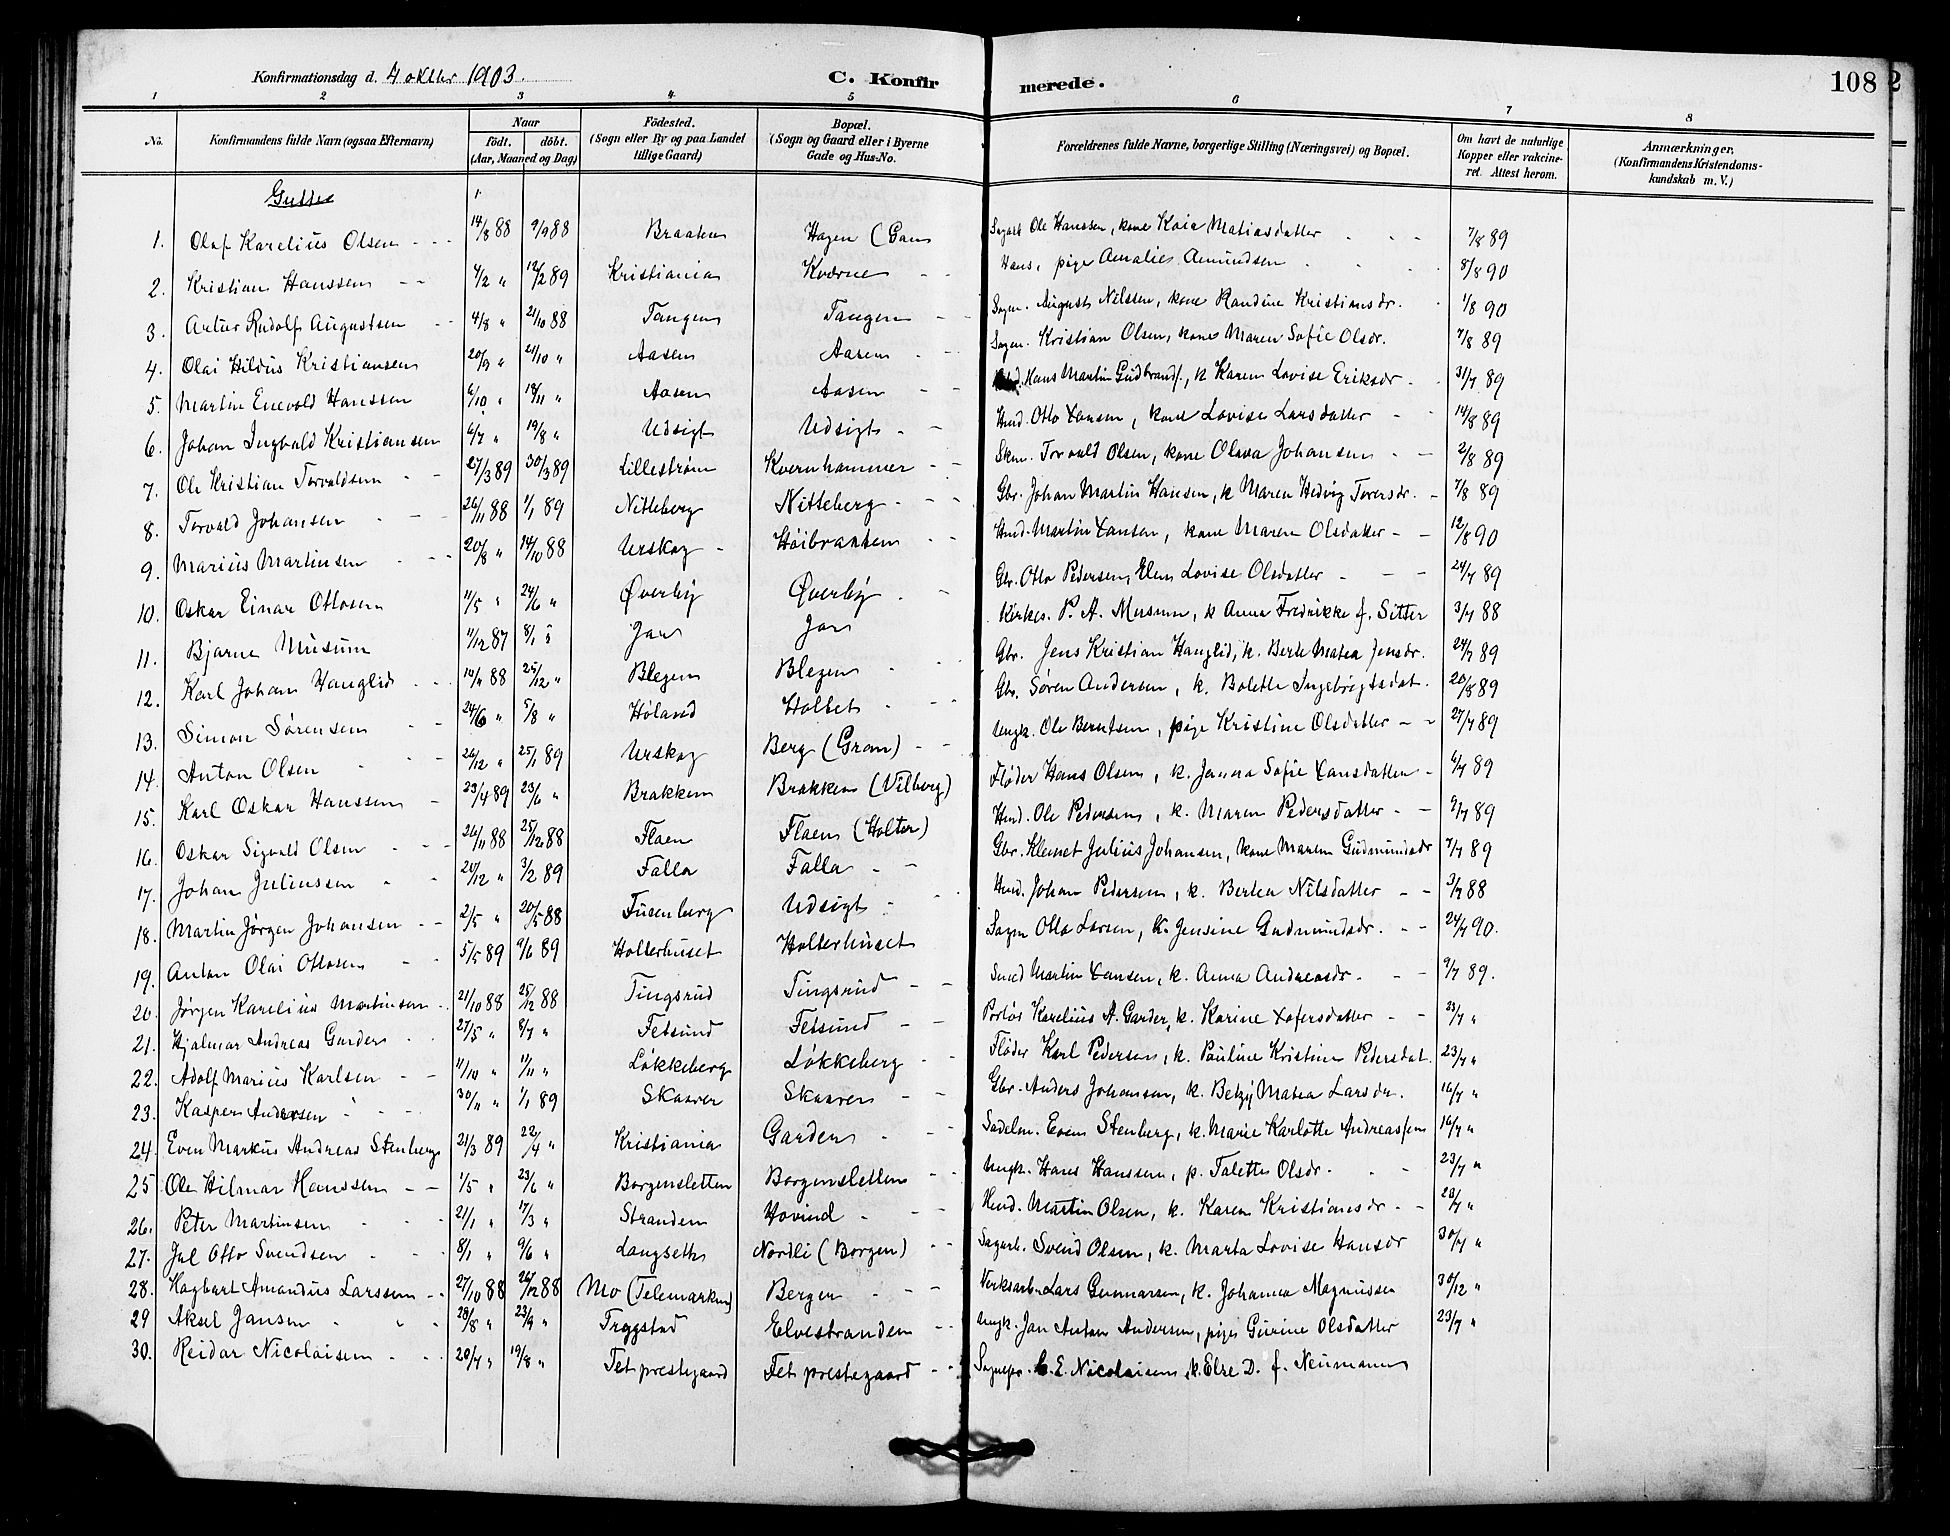 Konfirmationsdag d. 4 oktbr 1903. C. Konfirmerede. 108
1 2 3 4 5 6 7 8
No. Konfirmandens fulde Navn (ogsaa Efternavn) Naar født. døbt. (Aar, Maaned og Dag) Fødested. (Sogn eller By og paa Landet tillige Gaard) Bopæl. (Sogn og Gaard eller i Byerne Gade og Hus-No. Forældrenes fulde Navne, borgerlige Stilling (Næringsvei) og Bopæl. Om havt de naturlige Kopper eller vakcineret. Attest herom. Anmærkninger, (Konfirmandens Kristendomskundskab m. V.)
Gutter
1. Olaf Karelius Olsen 14/8 88 9/9 88 Braaten Hagen (Gan Sagarb Ole Hanssen, kone Kaia Matiasdatter 7/8 89
2. Kristian Hanssen 4/2 " 12/2 89 Kristiania Kværne Hans, pige Amalie Amundsen 8/8 90
3. Artur Rudolf Augustsen 4/8 " 21/10 88 Tangen Tangen Sagm. August Nilssen, kone Randine Kristiansdr. 1/8 90
4. Olai Hildus Kristiansen 20/9 " 21/10 " Aasen Aasen Sagm. Kristian Olsen, kone Maren Sofie Olsdr. 7/8 89
5. Martin Enevold Hanssen 6/10 " 18/11 " Aasen Aasen Hans Martin Gudbrands., k Karen Lovise Eriksdr. 31/7 89
6. Johan Ingvald Kristiansen 6/7 " 19/8 " Udsigt Udsigt Hmd. Otto Hansen, kone Lovise Larsdatter 14/8 89
7. Ole Kristian Torvaldsen 27/3 89 30/3 89 Lillestrøm Kvernhammer Skm. Torvald Olsen, kone Olava Johansen 2/8 89
8. Torvald Johansen 26/11 88 1/1 89 Nitteberg Nitteberg Gbr. Johan Martin Hansen, k Maren Hedvig Toversdr. 7/8 89
9. Marius Martinsen 20/8 " 14/10 88 Urskog Høibraaten Hmd. Martin Hansen, kone Maren Olsdatter 12/8 90
10. Oskar Einar Ottosen 11/5 " 24/6 " Øverby Øverby Gbr. Otto Pedersen, Elen Lovise Olsdatter 24/7 89
11. Bjarne Musum 11/12 87 8/1 " Jar Jar Kirkes. P. A. Musum, k Anna Fredrikke f. Sitter 3/7 88
12. Karl Johan Hanglid 14/11 88 25/12 " Blegen Blegen Gbr. Jens Kristian Hanglid, k. Berte Matea Jensdr. 24/7 89
13. Simon Sørensen 24/6 " 5/8 " Høland Holtet Gbr. Søren Andersen, k. Bolette Ingebrigtsdat. 20/8 89
14. Anton Olsen 26/12 " 25/1 89 Urskog Berg (Gran) Ungk. Ole Berntsen, pige Kristine Olsdatter 27/7 89
15. Karl Oskar Hanssen 23/4 89 23/6 " Brakken Brakken (Vilberg) Fløder Hans Olsen, k. Janna Sofie Hansdatter 6/7 89
16. Oskar Sigvald Olsen 26/11 88 25/12 88 Flaen Flaen (Holter) Hmd. Ole Pedersen, k. Maren Pedersdatter 9/7 89
17. Johan Juliussen 20/12 " 3/2 89 Falla Falla Gbr. Klemet Julius Johansen, kone Maren Gudmundsdr 7/7 89
18. Martin Jørgen Johansen 2/5 " 20/5 88 Furenberg Udsigt Hmd. Johan Pedersen, k. Bertea Nilsdatter 3/7 88
19. Anton Olai Ottosen 5/5 89 9/6 89 Holterhuset Holterhuset Sagm Otto Larsen, k. Jensine Gudmundsdr. 24/7 90.
20. Jørgen Karelius Martinsen 21/10 88 25/12 88 Tingsrud Tingsrud Smed Martin Hansen, k. Anna Andreasdr. 9/7 89.
21. Hjalmar Andreas Garder 27/5 " 8/7 " Fetsund Fetsund Karelius A. Garder, k. Karine Xofersdatter 23/7 "
22. Adolf Marius Karlsen 11/10 " 11/11 " Løkkeberg Løkkeberg Fløder Karl Pedersen, k. Pauline Kristine Pedersdat. 23/7 "
23. Kasper Andersen 30/11 " 1/1 89 Skaarer Skaarer Gbr. Anders Johansen, k. Betzy Matea Larsdr. 16/7 "
24 Even Markus Andreas Stenberg 21/3 89 22/4 " Kristiania Garder Sadelm. Even Stenberg, k. Marie Karlotte Andreassen 16/7 "
25 Ole Hilmar Hanssen 1/5 " 23/6 " Borgensletten Borgensletten Ungk. Hans Hanssen, p. Talette Olsdr. 23/7 "
26. Peter Martinsen 21/1 " 17/3 " Stranden Hovind Hmd. Martin Olsen, k. Karen Kristiansdr 23/7 "
27. Jul Otto Svendsen 8/1 " 9/6 " Langseth Nordli (Borgen) Sagarb. Svend Olsen, k. Marta Lovise Hansdr 30/7 "
28. Hagbart Amandus Larssen 27/10 88 26/12 88 Mo (Telemarken) Bergen Verksarb. Lars Gunnarsen, k. Johanna Magnussen 30/12 "
29 Aksel Jansen 28/8 " 23/9 " Trygstad Elvestranden Ungk. Jan Anton Andersen, pige Gurine Olsdatter 23/7 "
30. Reidar Nicolaisen 20/7 " 19/8 " Fet prestegaard Fet prestegaard Sognepr. C. E. Nicolaisen, k. Elze D. f. Neumann